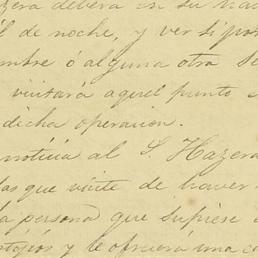 deberá en su
de noche, y ver si
ó alguna otra
visitará aquel punto
dicha operacion.
noticia al S. Hazera
que visite de haver
persona que supiese
y le ofreciera una